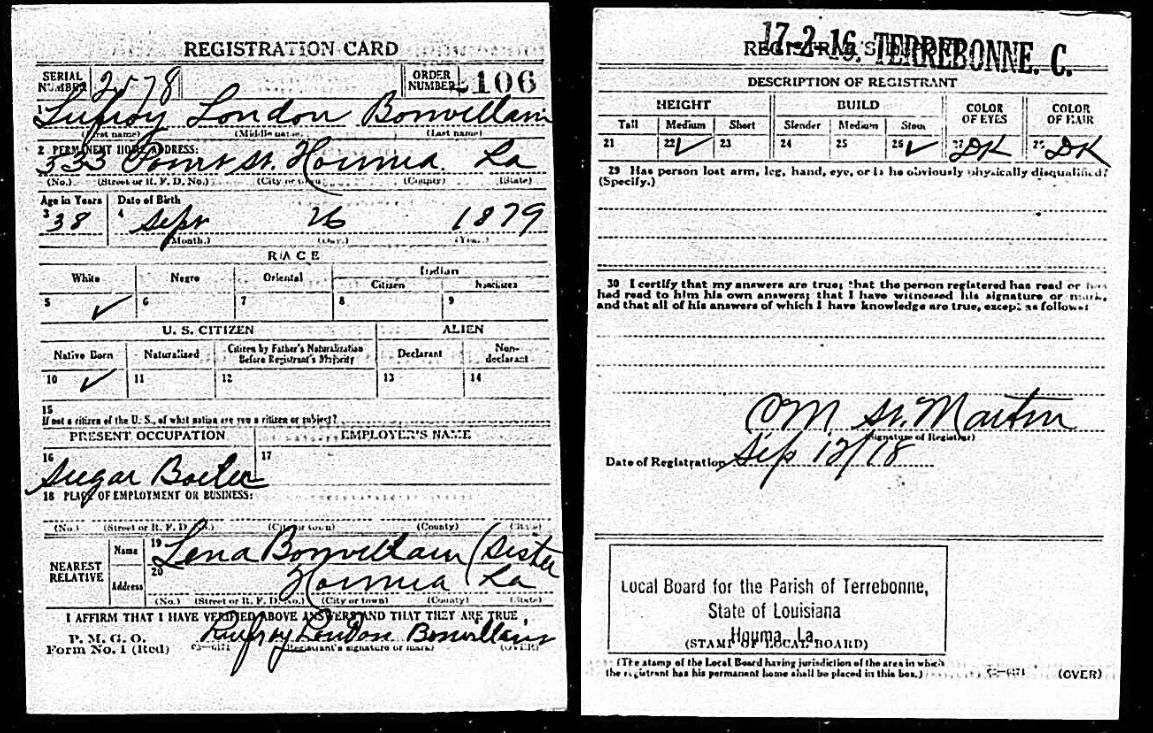 REGISTRATION CARD
SERIAL NUMBER 2578 ORDER NUMBER 106
1 London Bonvillain
(First name) (Middle name) (Last name)
2 PERMANENT HOME ADDRESS:
333 Court St. Houma La
(No.) (Street or R. F. D. No.) (City or town) (County) (State)
Age in Years Date of Birth
3 38 4 Sept 26 1879
(Month.) (Day.) (Year.)
RACE
White Negro Oriental Indian
Citizen Noncitizen
5 ✓ 6 7 8 9
U. S. CITIZEN ALIEN
Native Born Naturalized Citizen by Father's Naturalization Before Registrant's Majority Declarant Non-declarant
10 ✓ 11 12 13 14
15
If not a citizen of the U. S., of what nation are you a citizen or subject?
PRESENT OCCUPATION EMPLOYER'S NAME
16 Sugar Boiler 17
18 PLACE OF EMPLOYMENT OR BUSINESS:
(No.) (Street or R. F. D. No.) (City or town) (County) (State)
NEAREST RELATIVE Name 19 Lena Bonvillain (Sister
Address 20 Houma La
(No.) (Street or R. F. D. No.) (City or town) (County) (State)
I AFFIRM THAT I HAVE VERIFIED ABOVE ANSWERS AND THAT THEY ARE TRUE
P. M. G. O.
Form No. 1 (Red) 03—6171 London Bonvillain
(Registrant's signature or mark) (OVER)
17-2-16. TERREBONNE. C.
REGISTRAR'S REPORT
DESCRIPTION OF REGISTRANT
HEIGHT BUILD COLOR OF EYES COLOR OF HAIR
Tall Medium Short Slender Medium Stout
21 22 ✓ 23 24 25 26 ✓ 27 DK 28 DK
29 Has person lost arm, leg, hand, eye, or is he obviously physically disqualified?
(Specify.)
30 I certify that my answers are true; that the person registered has read or has
had read to him his own answers; that I have witnessed his signature or mark,
and that all of his answers of which I have knowledge are true, except as follows:
CM St. Martin
(Signature of Registrar)
Date of Registration Sep 12/18
Local Board for the Parish of Terrebonne,
State of Louisiana
Houma, La.
(STAMP OF LOCAL BOARD)
(The stamp of the Local Board having jurisdiction of the area in which
the registrant has his permanent home shall be placed in this box.) 03—6171 (OVER)